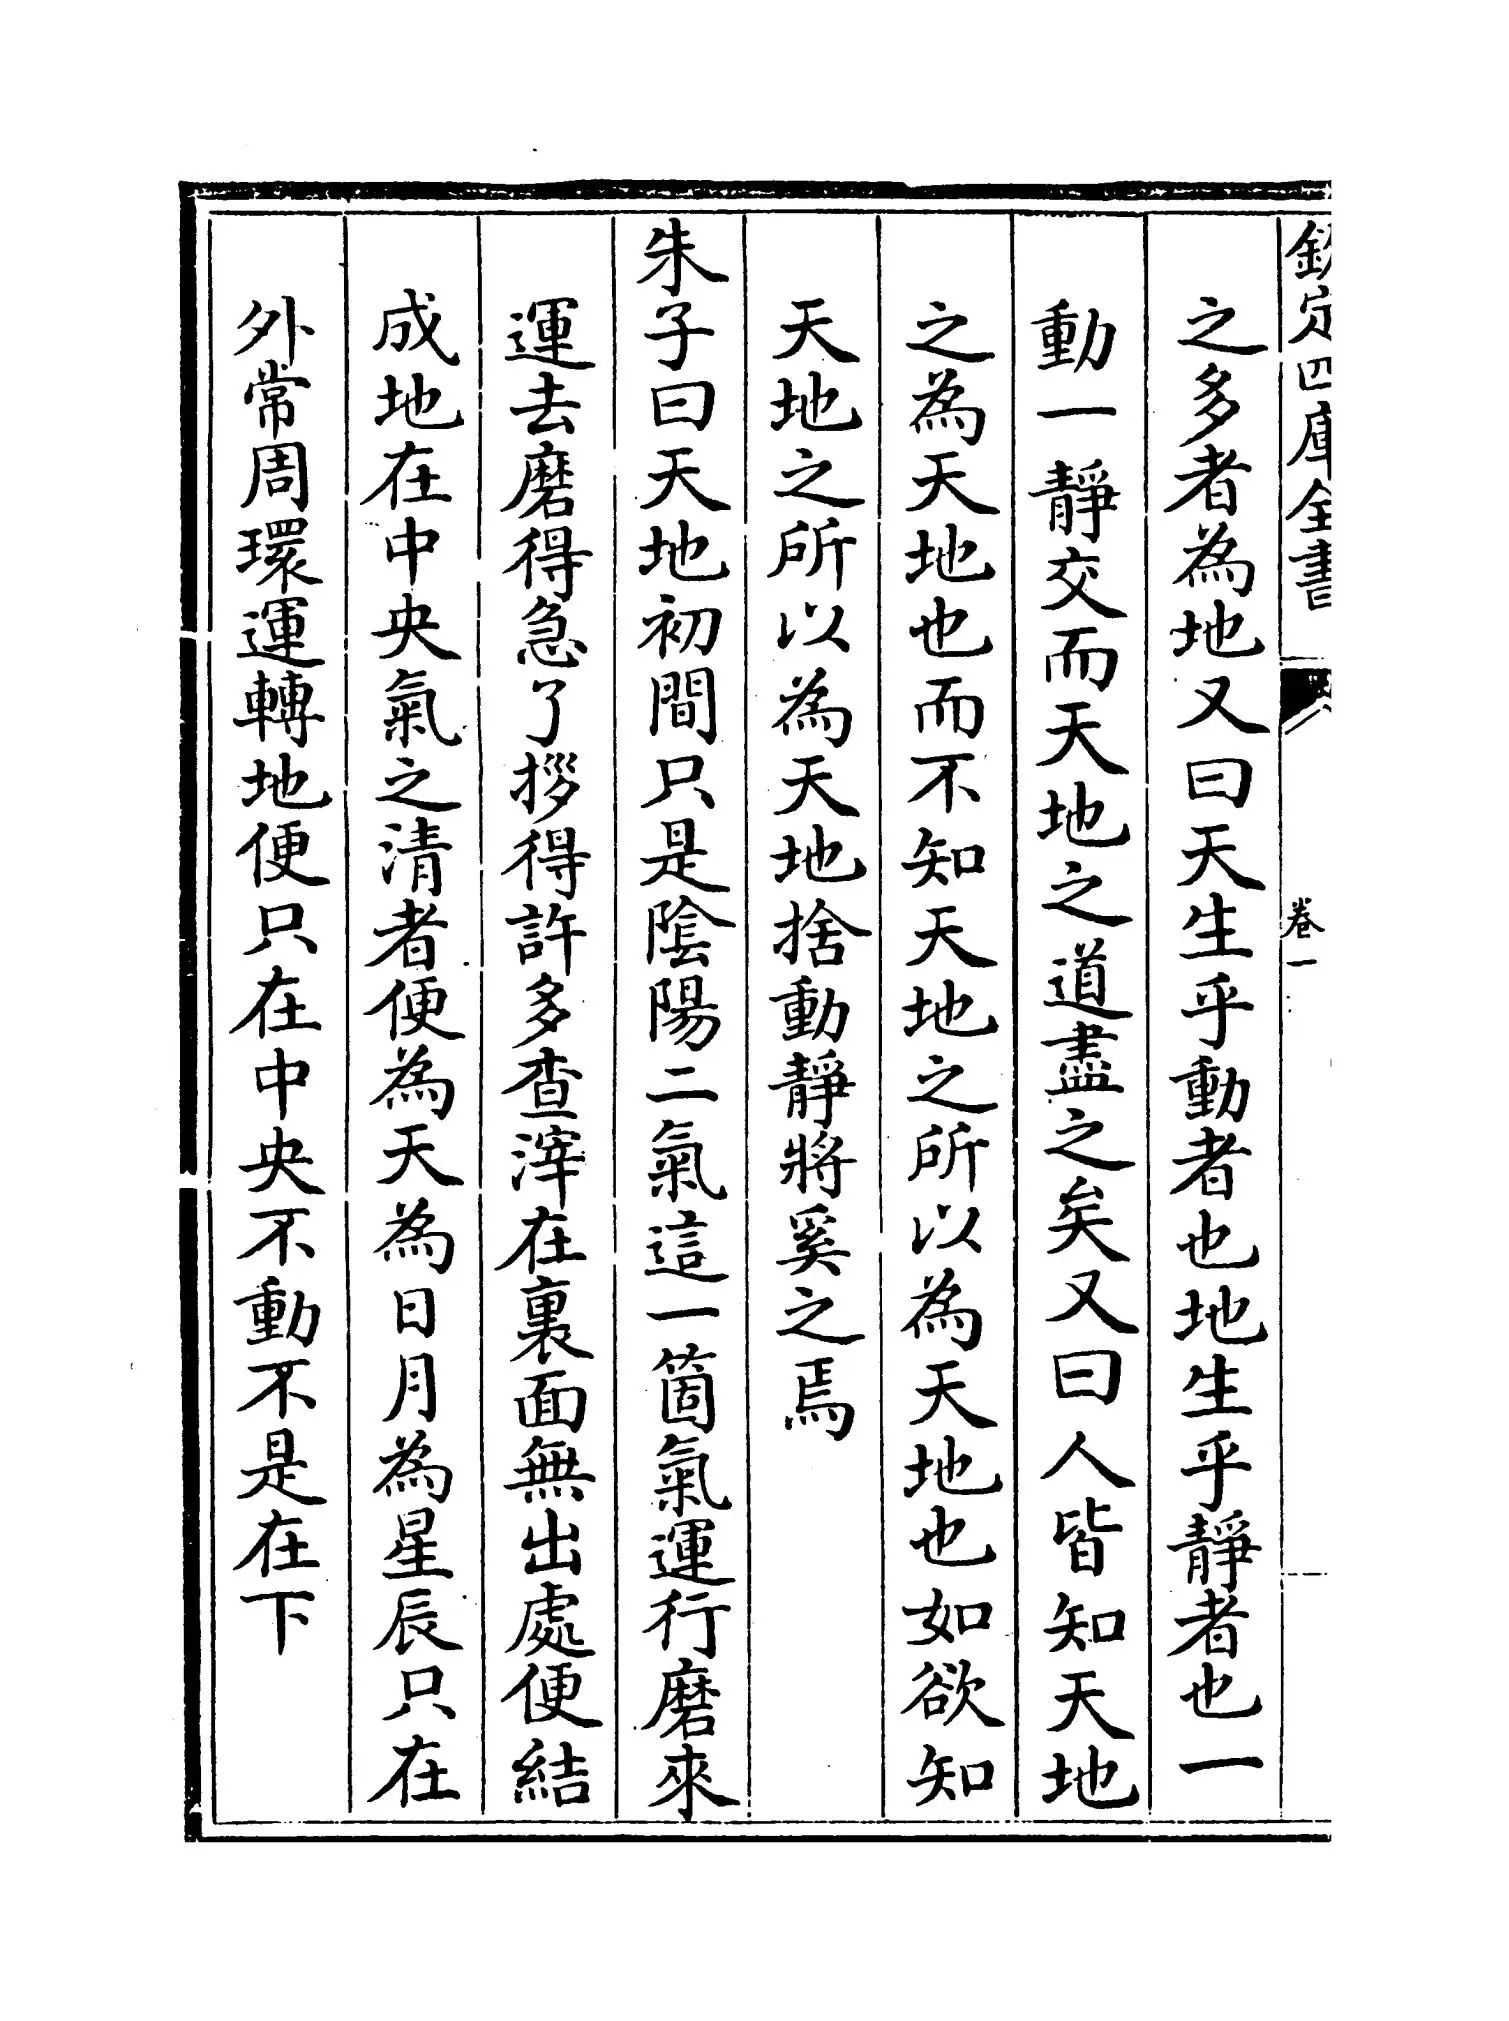 欽定四庫全書
卷一
之多者為地又曰天生乎動者也地生乎靜者也一
動一靜交而天地之道盡之矣又曰人皆知天地
之為天地也而不知天地之所以為天地也如欲知
天地之所以為天地捨動靜將奚之焉
朱子曰天地初間只是陰陽二氣這一箇氣運行磨來
運去磨得急了拶得許多查滓在裏面無出處便結
成地在中央氣之清者便為天為日月為星辰只在
外常周環運轉地便只在中央不動不是在下